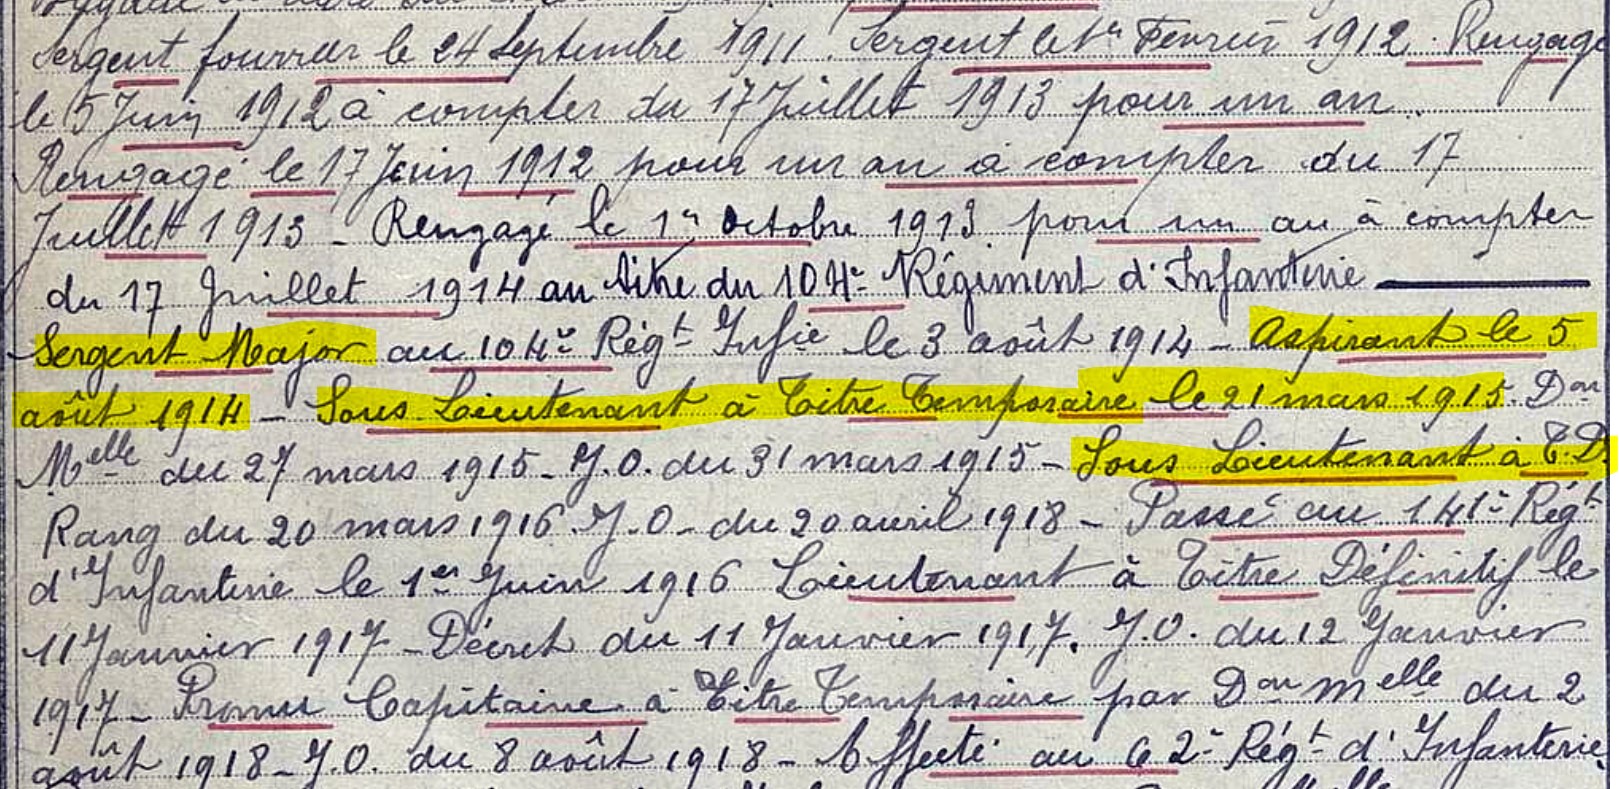 Sergent fourrier le 24 Septembre 1911. Sergent le 1er Fevrier 1912. Rengagé
le 5 Juin 1912 à compter du 17 Juillet 1913 pour un an.
Rengagé le 17 Juin 1912 pour un an à compter du 17
Juillet 1913 - Rengagé le 1er Octobre 1913 pour un an à compter
du 17 Juillet 1914 au titre du 104e Régiment d'Infanterie
Sergent Major au 104e Régt Infie le 3 août 1914 - Aspirant le 5
août 1914 - Sous Lieutenant à Titre Temporaire le 21 mars 1915. Don
Melle du 27 mars 1915 - J.O. du 31 mars 1915 - Sous Lieutenant à T.D.
Rang du 20 mars 1916. J.O. du 20 avril 1918 - Passé au 141e Régt
d'Infanterie le 1er Juin 1916 Lieutenant à Titre Définitif le
11 Janvier 1917 - Décret du 11 Janvier 1917. J.O. du 12 Janvier
1917 - Promu Capitaine à Titre Temporaire par Don melle du 2
août 1918 - J.O. du 8 août 1918 - Affecté au 62e Régt d'Infanterie